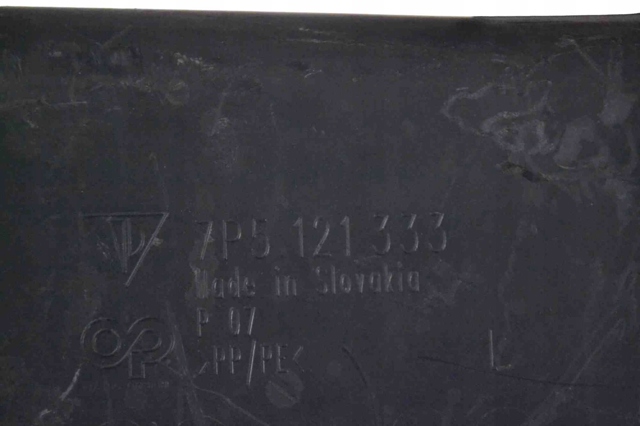 7P5 121 333
Made in Slovakia
P 07
>PP/PE<
L